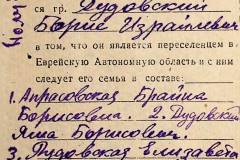 ся гр. Дудовский
Борис Израйлевич
в том, что он является переселенцем в
Еврейскую Автономную область и с ним
следует его семья в составе:
1. Апрасовская Брайна
Борисовна. 2. Дудовский
Яша Борисович.
3. Дудовская Елизавета